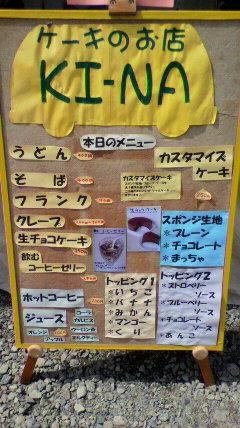 ケーキのお店
KI-NA
本日のメニュー
うどん
そば
フランク
クレープ
生チョコケーキ
飲む
コーヒーゼリー
ホットコーヒー
ジュース
コーラ
カルピス
オレンジ
ウーロン茶
アップル
ミルクティー
カスタマイズ
ケーキ
カスタマイズケーキ
スポンジ生地
*プレーン
*チョコレート
*まっちゃ
トッピング1
*いちご
*バナナ
*みかん
*マンゴー
*くり
トッピング2
*ストロベリー
ソース
*ブルーベリー
ソース
*チョコレート
ソース
*あんこ